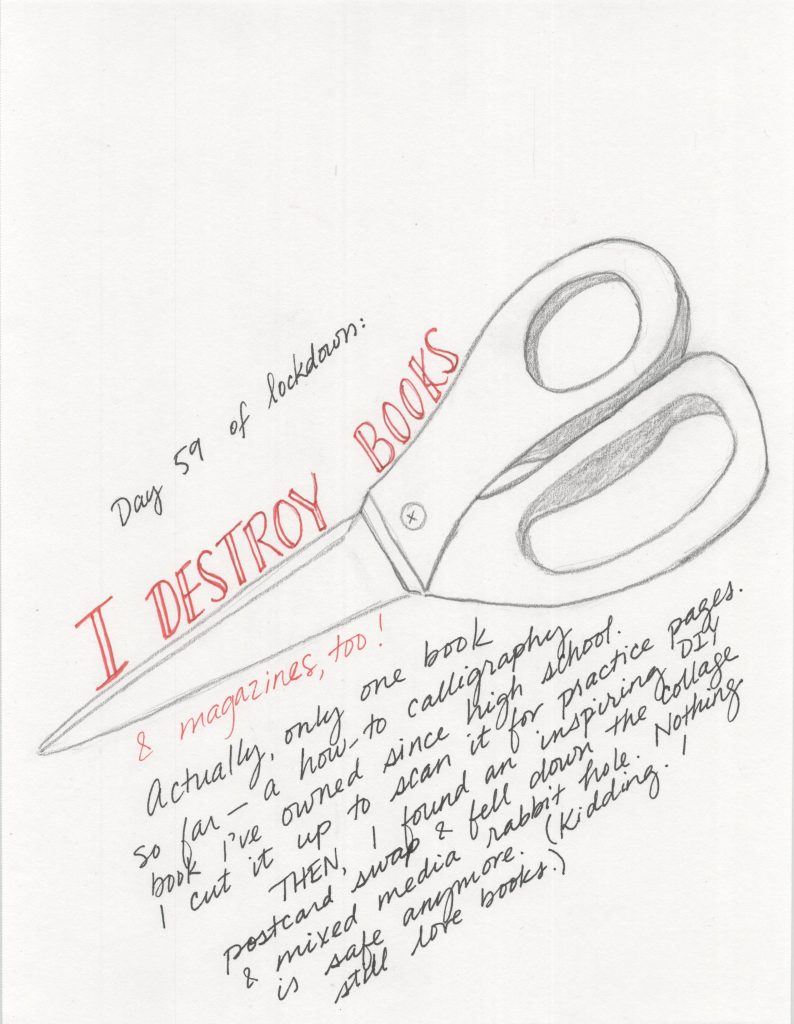 Day 59 of lockdown:
I DESTROY BOOKS
& magazines, too!
Actually, only one book
so far – a how-to calligraphy
book I've owned since high school.
I cut it up to scan it for practice pages.
THEN, I found an inspiring DIY
postcard swap & fell down the collage
& mixed media rabbit hole. Nothing
is safe anymore. (Kidding. I
still love books.)